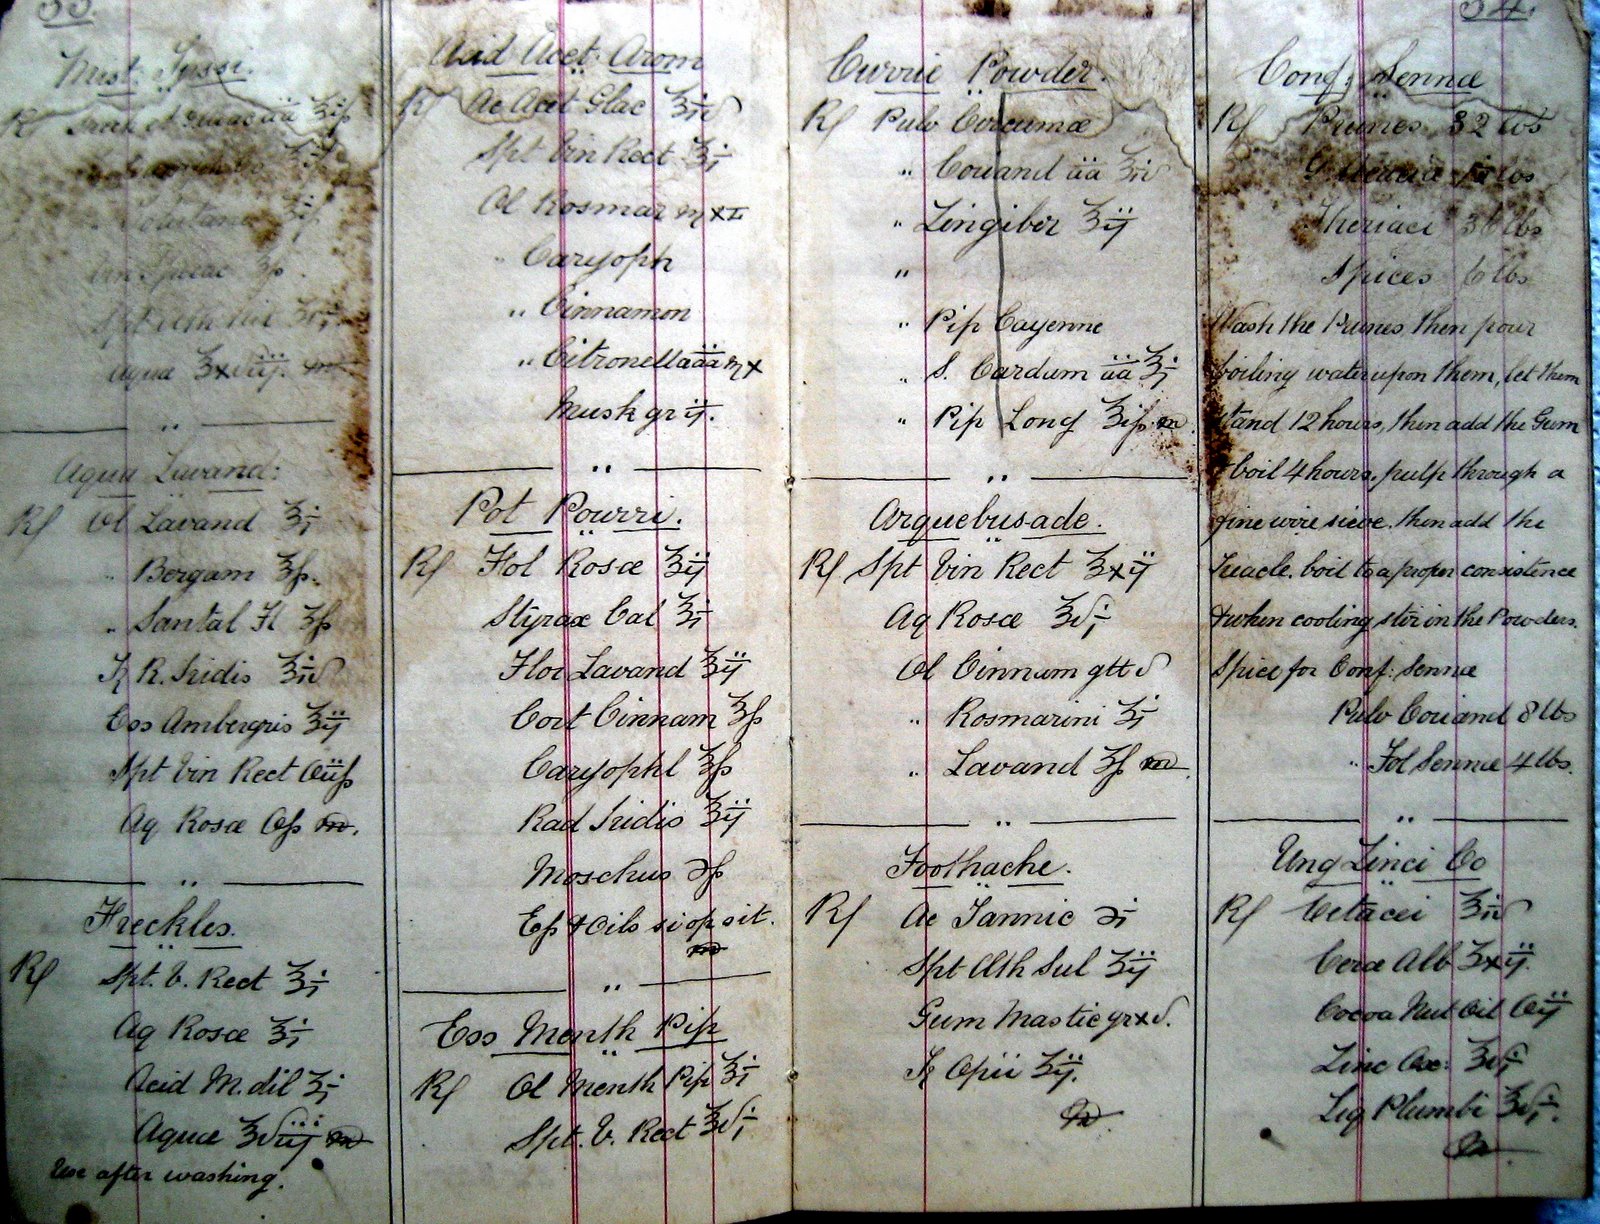 33.
Mist. Tussi.
Rx āā ʒifs
ʒi
Vin Ipecac ʒfs
Spt Æth Nit
Aqua ℥xviij. m
Aqua Lavand:
Rx Ol Lavand ʒj
" Bergam ʒfs.
" Santal Fl ʒfs
Tr R. Iridis ℥iv
Ess Ambergris ʒij
Spt Vin Rect Oiifs
Aq Rosæ Ofs m.
Freckles.
Rx Spt. V. Rect ℥j
Aq Rosæ ℥j
Acid M. dil ʒj
Aquæ ℥viij m
Use after washing.
Acid Acet. Arom
Rx Ac Acet Glac ℥iv
Spt Vin Rect ℥j
Ol Rosmar ♏xx
" Caryoph
" Cinnamon
" Citronella āā ♏x
Musk gr ij.
Pot Pourri.
Rx Fol Rosæ ℥ij
Styrax Cal ℥j
Flor Lavand ℥ij
Cort Cinnam ℥fs
Caryophl ℥fs
Rad Iridis ℥ij
Moschus ℈fs
Ess & Oils si op sit.
m
Ess Menth Pip
Rx Ol Menth Pip ℥j
Spt. V. Rect ℥vj
34.
Currie Powder.
Rx Pulv Curcumæ
" Coriand āā ℥iv
" Zingiber ℥ij
"
" Pip Cayenne
" S. Cardam āā ℥j
" Pip Long ℥ifs m.
Arquebusade.
Rx Spt Vin Rect ℥xij
Aq Rosæ ℥vj
Ol Cinnam gtt v
" Rosmarini ʒj
" Lavand ʒfs m
Toothache.
Rx Ac Tannic ℈j
Spt Æth Sul ʒij
Gum Mastic gr xv.
Tr Opii ʒij.
m
Conf: Sennæ
Rx Prunes 32 lbs
G. Acaciæ lbs
Theriaci 36 lbs
Spices 6 lbs
Wash the Prunes, then pour
boiling water upon them, let them
stand 12 hours, then add the Gum
& boil 4 hours, pulp through a
fine wire sieve. then add the
Treacle. boil to a proper consistence
& when cooling stir in the Powders.
Spice for Conf: Sennæ
Pulv Coriand 8 lbs
" Fol Sennæ 4 lbs.
Ung Zinci Co
Rx Cetacei ℥iv
Ceræ Alb ℥xij.
Cocoa Nut Oil Oij
Zinc Ox: ℥vj
Liq Plumbi ℥vj.
m